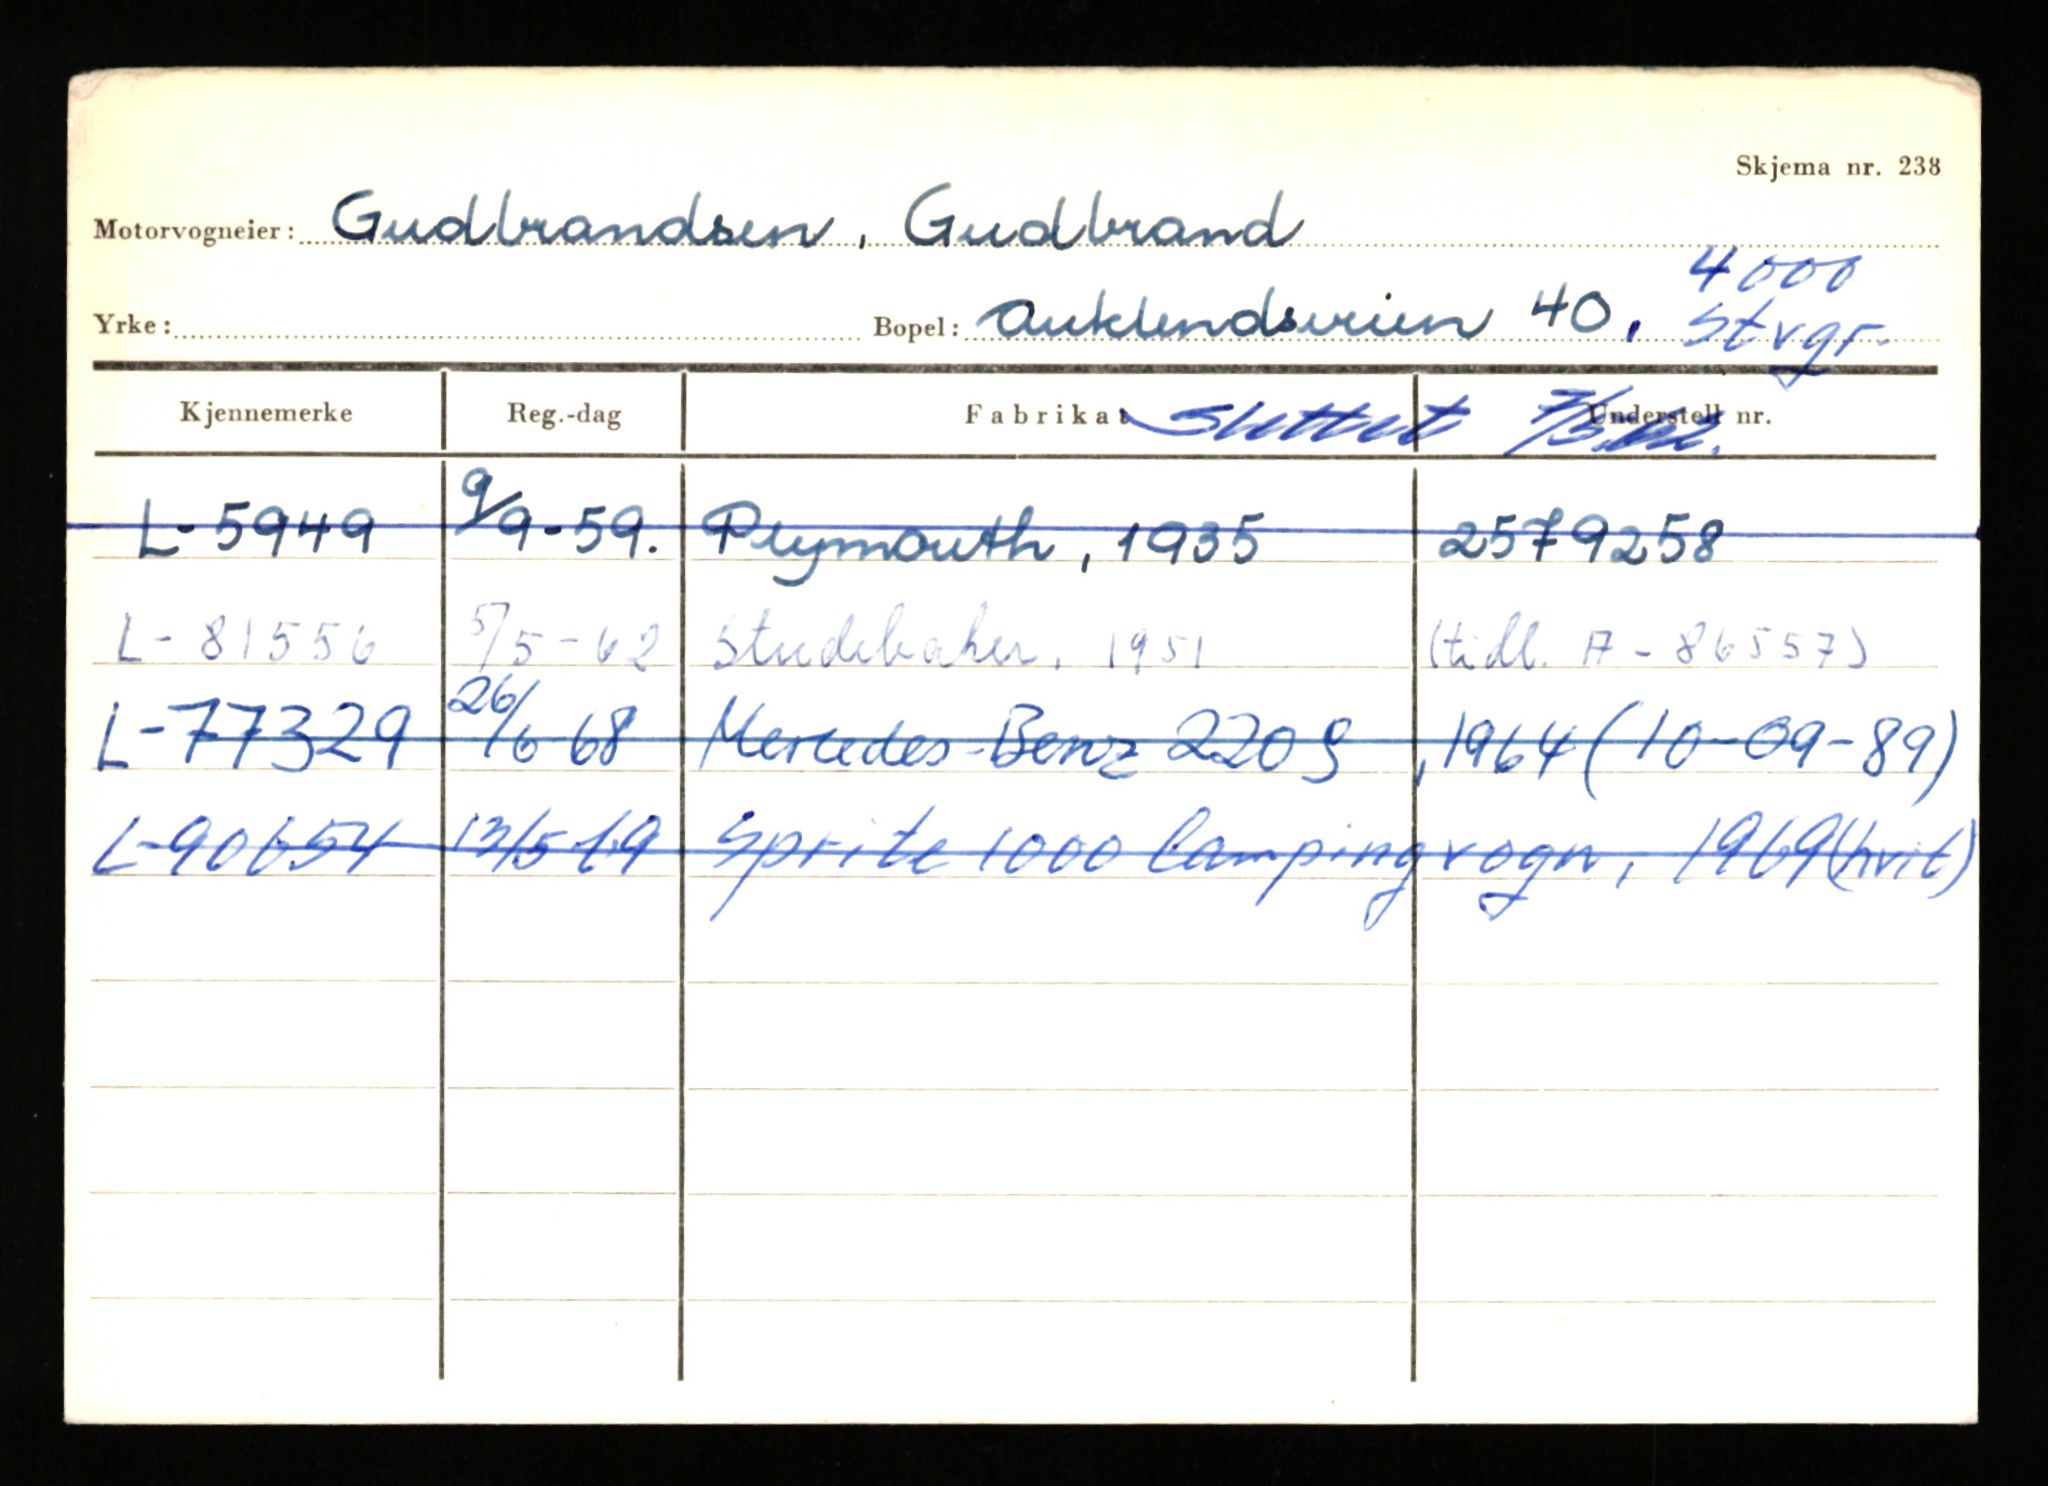 Skjema nr. 238
Motorvogneier: Gudbrandsen, Gudbrand
4000
Yrke: Bopel: Auklendsveien 40, Stvgr.
Kjennemerke Reg.-dag Fabrikat Understell nr.
Slettet
L-5949 9/9-59. Plymouth, 1935 2579258
L-81556 5/5-62 Studebaker, 1951 (tidl. A-86557)
L-77329 26/6 68 Mercedes-Benz 220 S, 1964 (10-09-89)
L-90654 13/5-69 Sprite 1000 Campingvogn, 1969 (hvit)